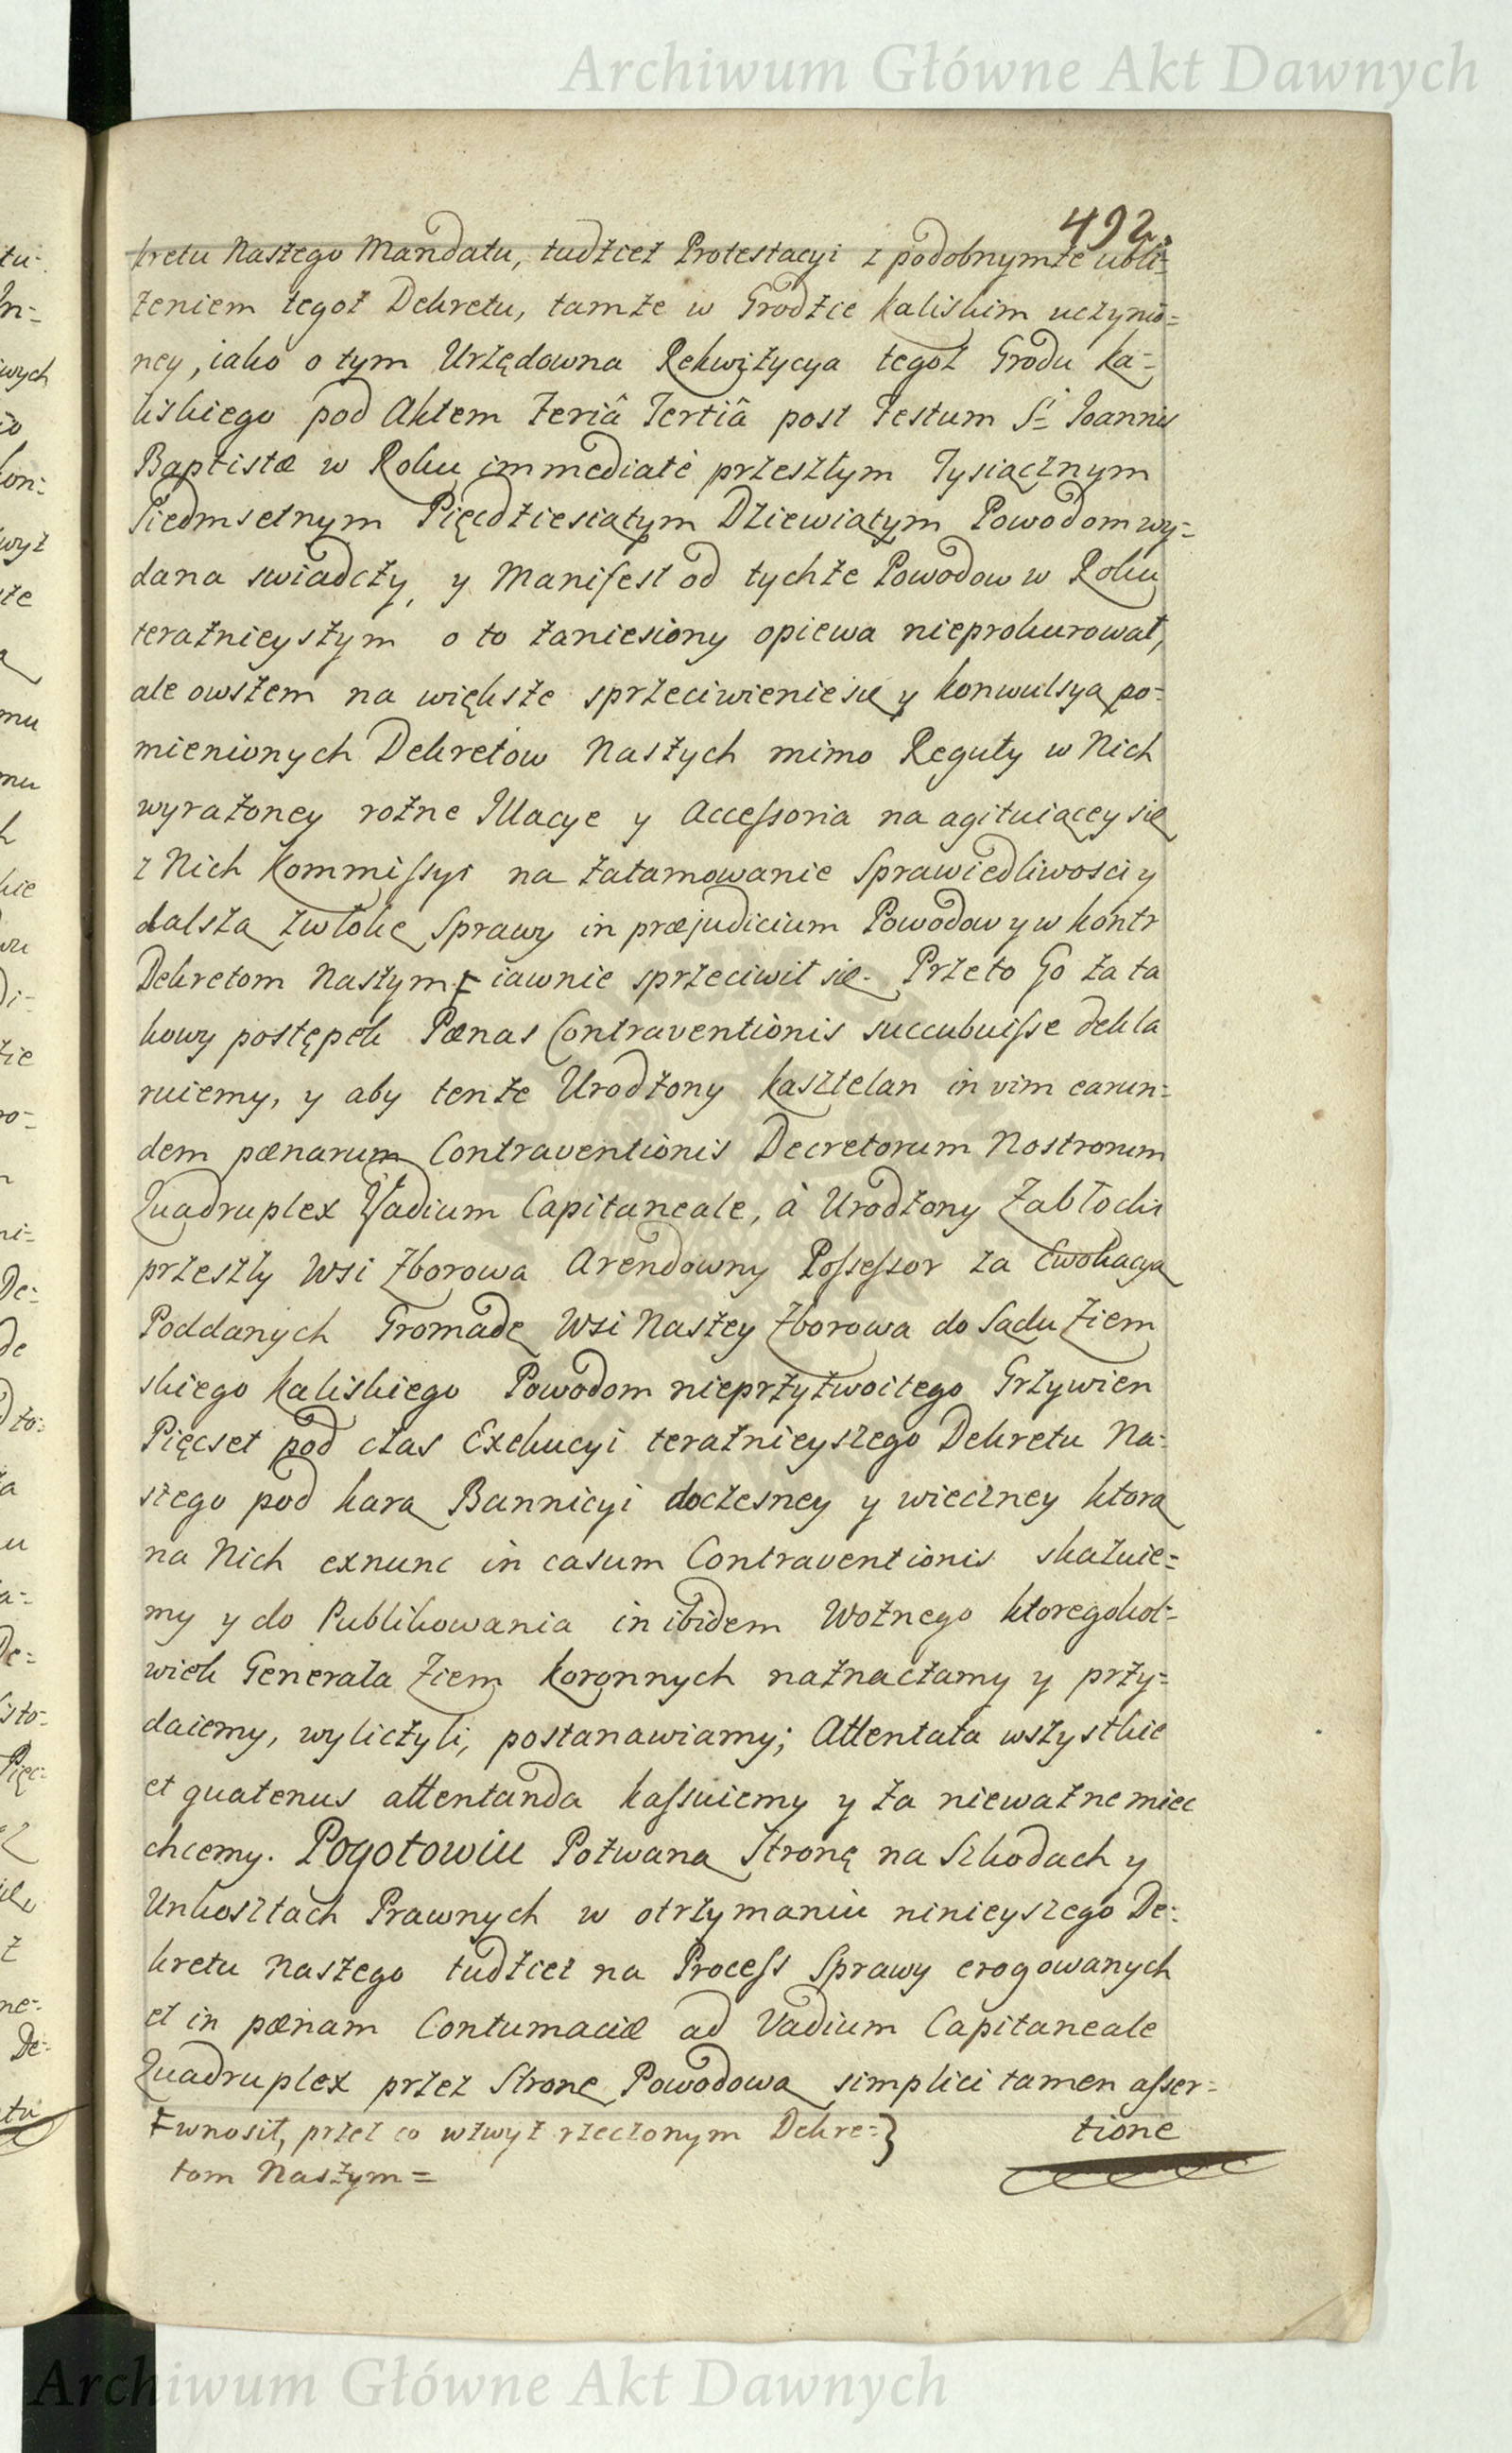 Archiwum Główne Akt Dawnych
492.
kretu Naszego Mandatu, tudzież Protestacyi z podobnymże ubli=
żeniem tegoż Dekretu, tamże w Grodzie Kaliskim uczynio=
ney, iako o tym Urzędowna Rekwizycya tegoż Grodu Ka=
liskiego pod Aktem Feriâ Tertiâ post Festum Sti Joannis
Baptistæ w Roku immediatè przeszłym Tysiącznym
Siedmsetnym Pięćdziesiątym Dziewiątym Powodom wy=
dana swiadczy, y Manifest od tychże Powodow w Roku
teraznieyszym o to zaniesiony opiewa nieprokurował,
ale owszem na większe sprzeciwienie się y konwulsyą po=
mienionych Dekretów Naszych mimo Reguły w Nich
wyrażoney rożne Illacye y Accessoria na agituiącey się
z Nich Kommissyi na zatamowanie Sprawiedliwosci y
dalszą zwłokę Sprawy in præjudicium Powodow y w kontr
Dekretom Naszym iawnie sprzeciwił się. Przeto Go za ta
kowy postępek Pænas Contraventionis succubuisse dekla
ruiemy, y aby tenże Urodzony Kasztelan in vim earun=
dem pænarum Contraventionis Decretorum Nostrorum
Quadruplex Vadium Capitaneale, à Urodzony Zabłocki
przeszły Wsi Zborowa Arendowny Possessor za Ewokacyą
Poddanych Gromadę Wsi Naszey Zborowa do Sądu Ziem
skiego Kaliskiego Powodom nieprzyzwoitego Grzywien
Pięcset pod czas Exekucyi teraznieyszego Dekretu Na=
szego pod karą Bannicyi doczesney y wieczney ktorą
na Nich exnunc in casum Contraventionis skazuie=
my y do Publikowania in ibidem Woznego ktoregokol=
wiek Generała Ziem Koronnych naznaczamy y przy=
daiemy, wyliczyli, postanawiamy; Attentata wszystkie
et quatenus attentanda kassuiemy y za nieważne miec
chcemy. Pogotowiu Pozwaną Stronę na Szkodach y
Unkosztach Prawnych w otrzymaniu ninieyszego De=
kretu Naszego tudzież na Process Sprawy erogowanych
et in pænam Contumaciæ ad Vadium Capitaneale
Quadruplex przez Stronę Powodową simplici tamen asser=
tione
wnosił, przez co wzwyż rzeczonym Dekre=
tom Naszym =
Archiwum Główne Akt Dawnych